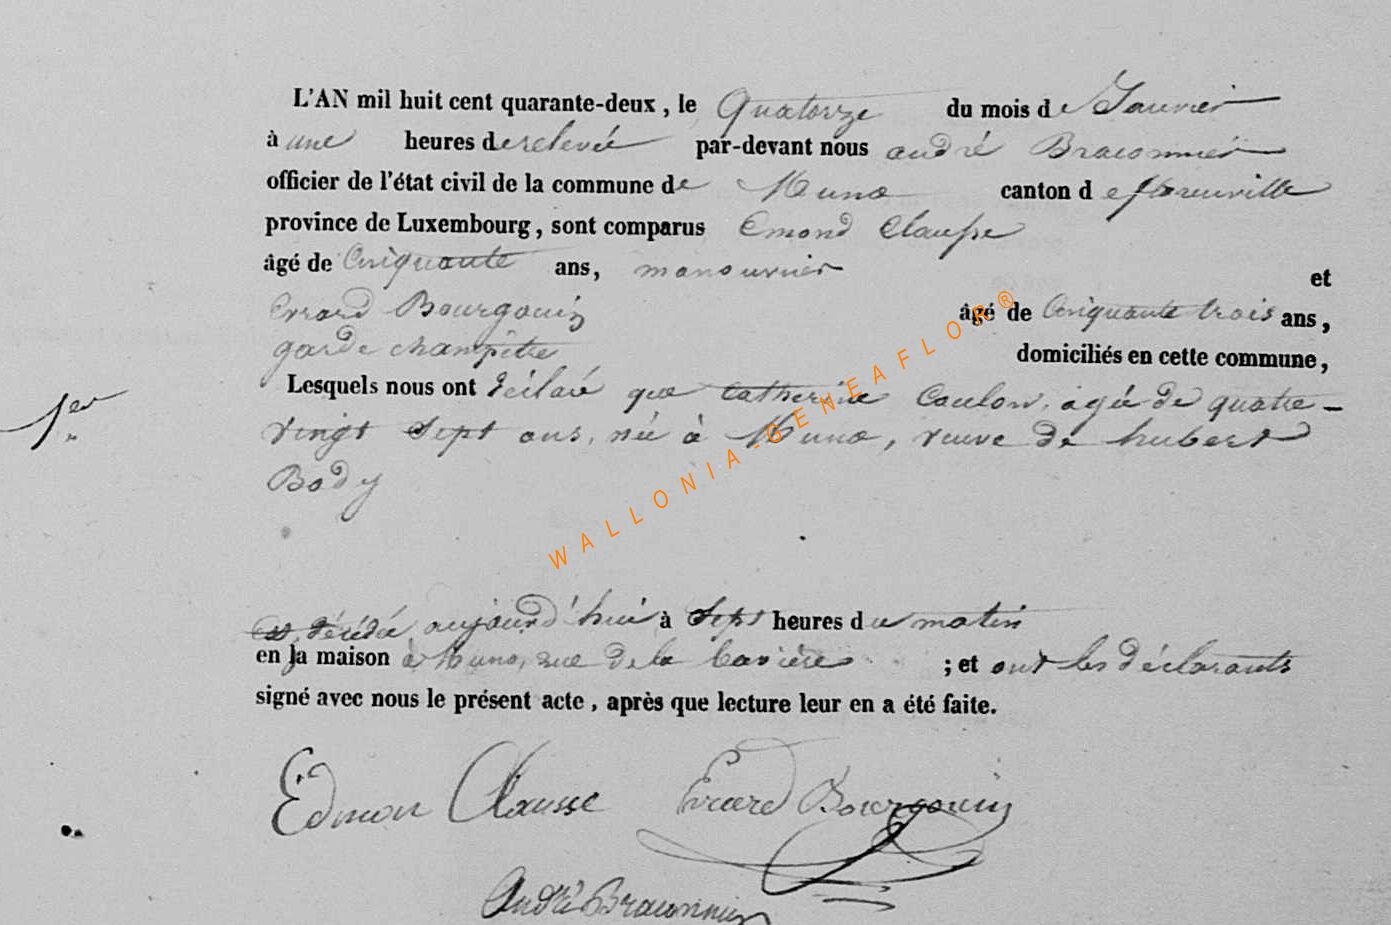 L'AN mil huit cent quarante-deux, le Quatorze du mois de Janvier
à une heures de relevée par-devant nous andré Braconnier
officier de l'état civil de la commune de Muno canton de florenville
province de Luxembourg, sont comparus Emond Clausse
âgé de Cinquante ans, manouvrier et
Evrard Bourgouin âgé de Cinquante trois ans,
garde champêtre domiciliés en cette commune,
1er
Lesquels nous ont déclaré que Catherine Coulon, agée de quatre-
vingt Sept ans, née à Muno, veuve de hubert
Body
est décédée aujourd'hui à Sept heures du matin
en sa maison à Muno, rue de la ; et ont les déclarants
signé avec nous le présent acte, après que lecture leur en a été faite.
Edmon Clausse Evrard Bourgouin
André Braconnier
WALLONIA-GENEAFLOR®